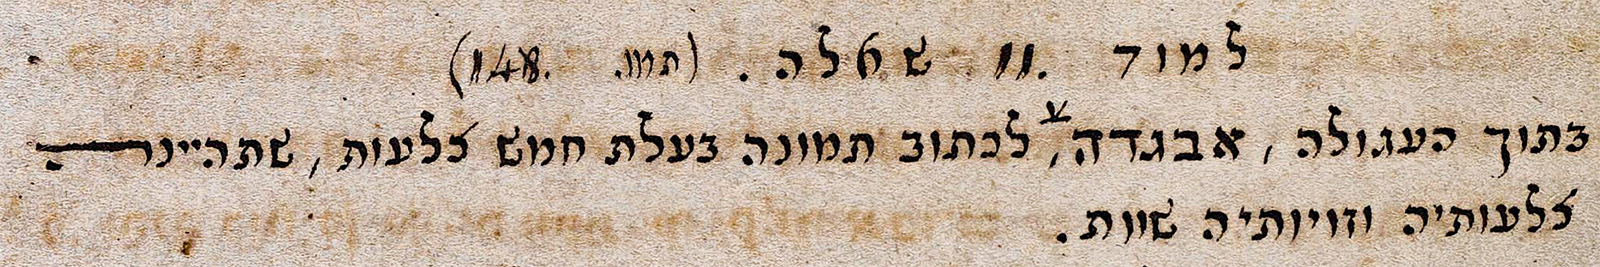 למוד .11 שאלה. (תמו. 148.)
בתוך העגולה, אבגדה, לכתוב תמונה בעלת חמש צלעות, שתהיינה
צלעותיה וזויותיה שוות.